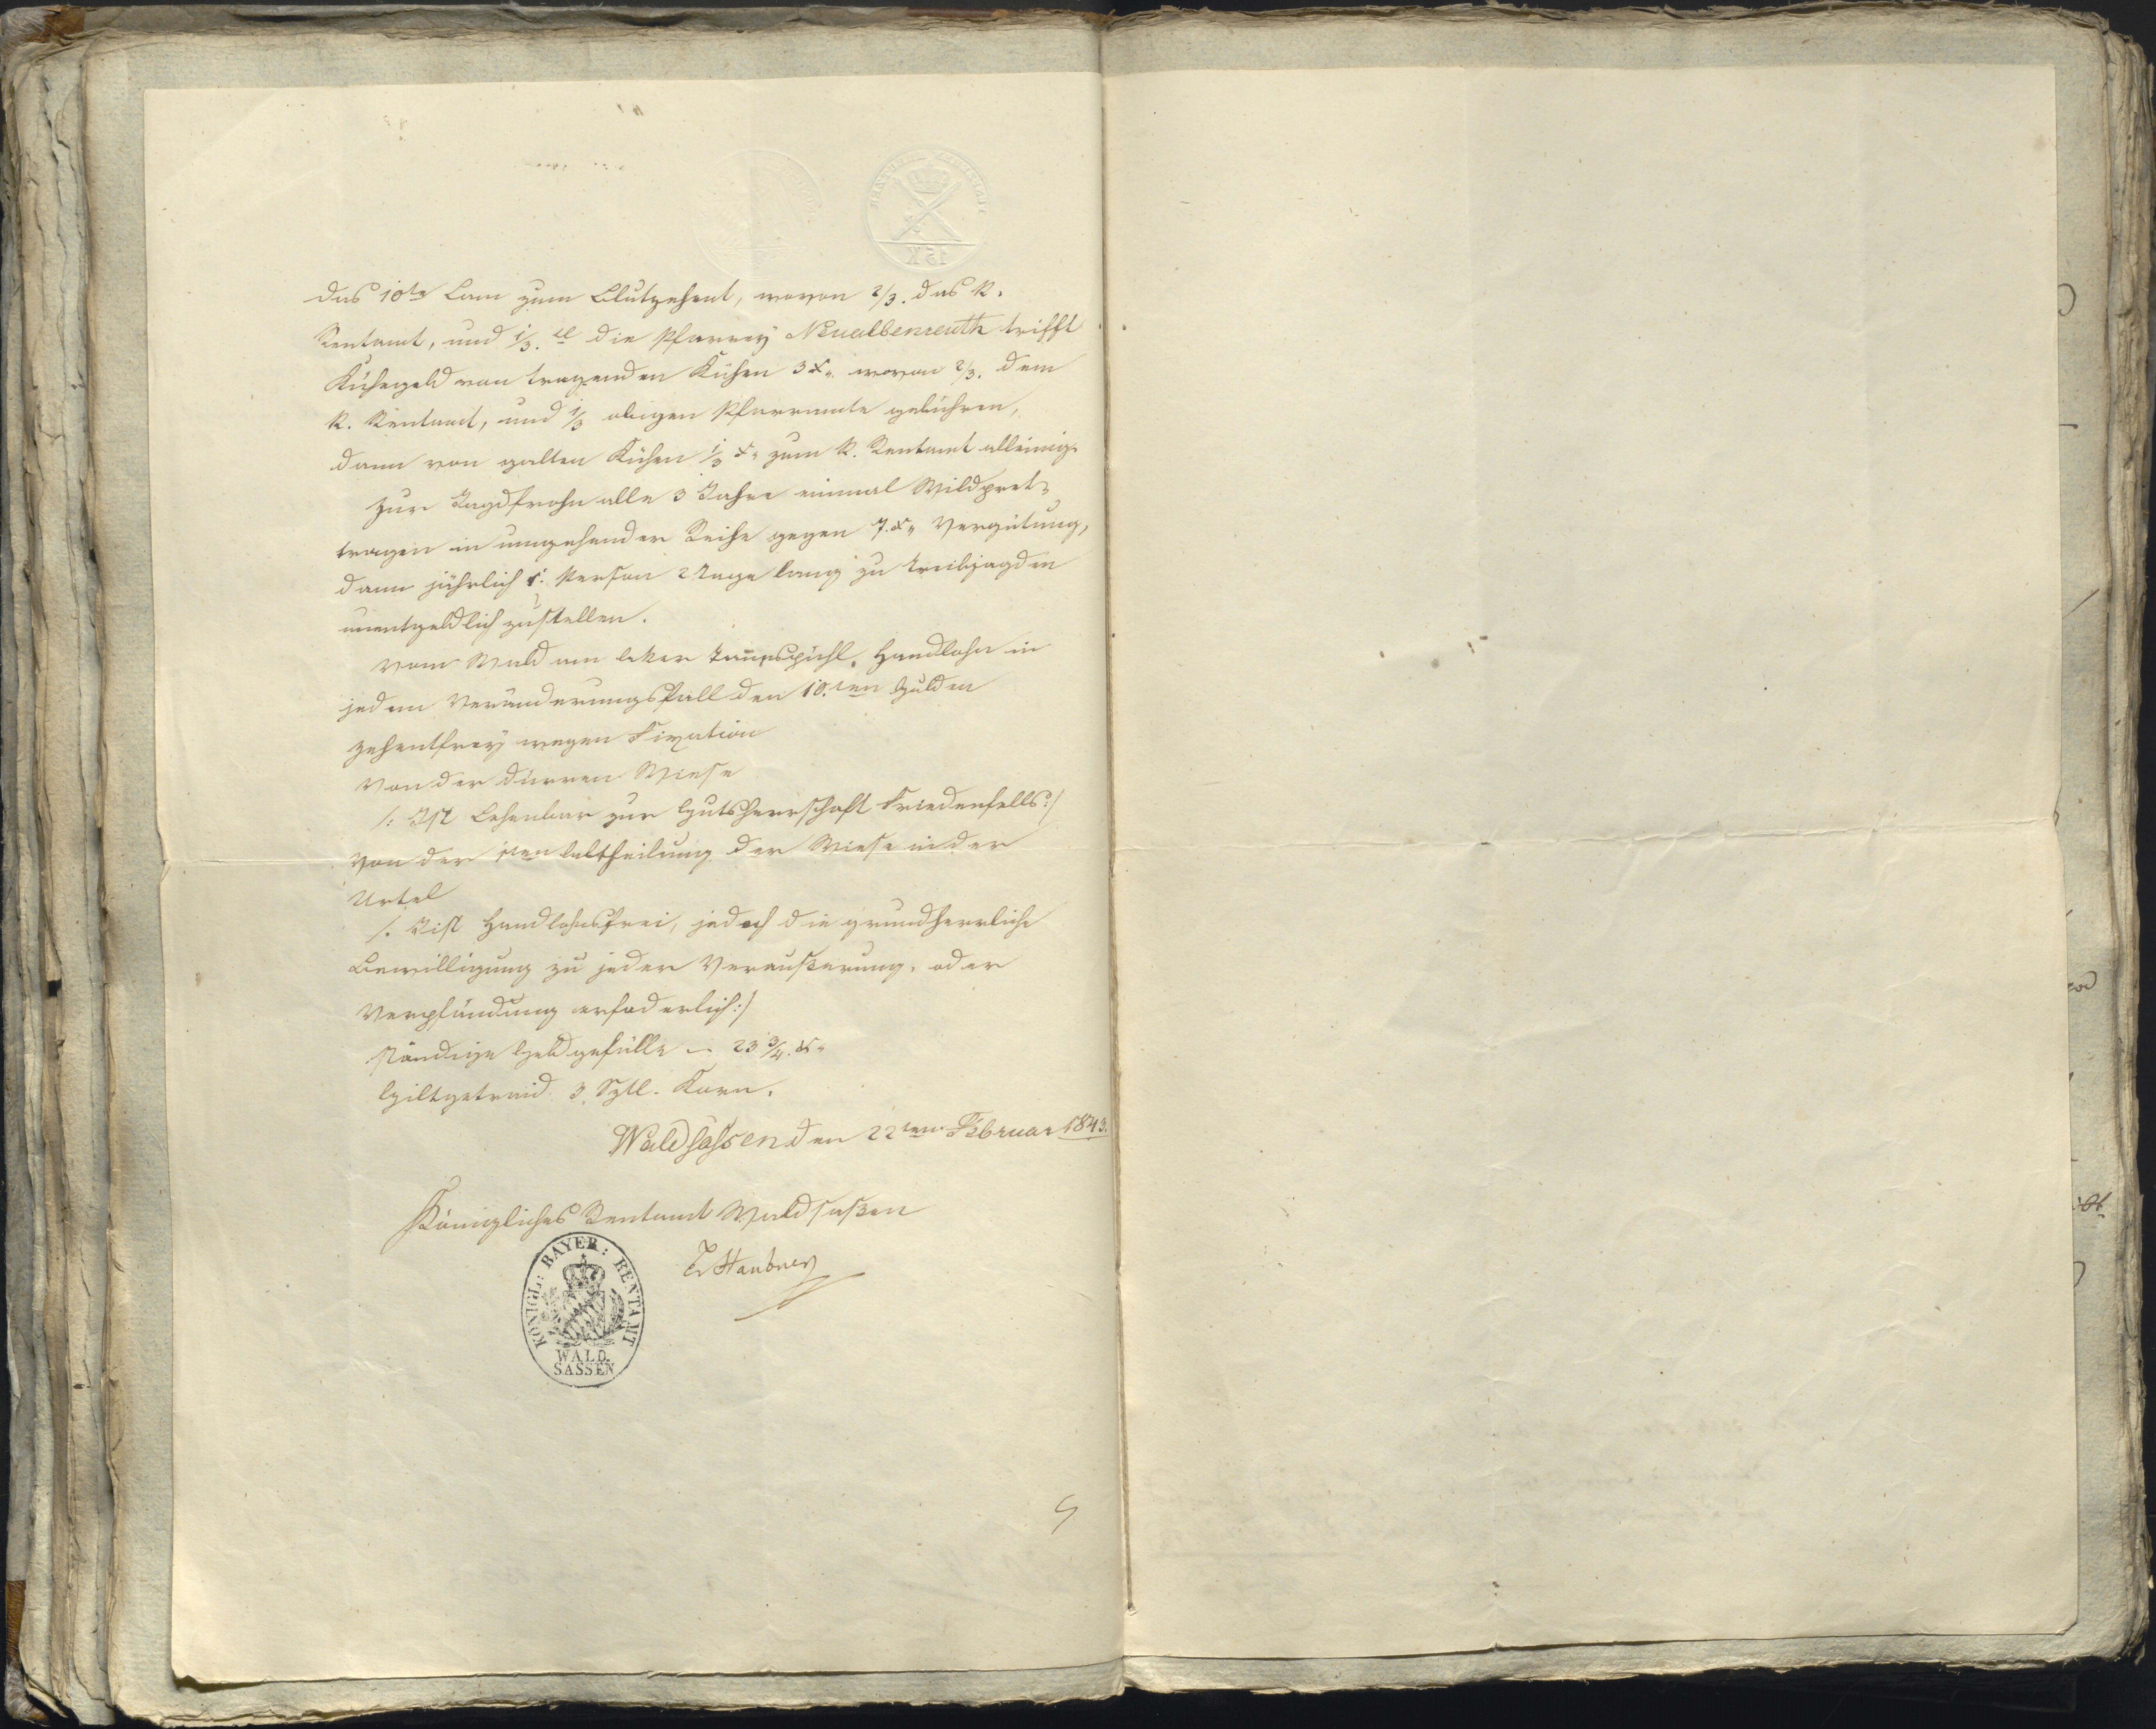 das 10te Lam zum Blutzehent, wovon 2/3. das K.
Rentamt, und 1/3. tl die Pfarrey Neualbenreuth trifft
Kühegeld von tragenden Kühen 3 x. wovon 2/3. dem
K. Rentamt, und 1/3 obigen Pfarramte gebühren,
dann von galten Kühen 1/3 x. zum K. Rentamt alleinig.
Zur Jagdfrohn alle 3 Jahre einmal Wildpret
tragen in umgehender Reihe gegen 7. x. Vergütung,
dann jährlich 1. Person 2 Tage lang zu Treibjagden
unentgeldlich zustellen.
Vom Wald am Handlohn in
jedem Veränderungsfall den 10.ten Gulden
zehentfreÿ wegen Fixation
Von der dürren Wiese
/: Ist Lehenbar zur Gutsherrschaft Friedenfells :/
Von der Abtheilung der Wiese in der
Urtel
/: Ist Handlohnsfrei, jedoch die grundherrliche
Bewilligung zu jeder Veraußerung, oder
Verpfändung erfoderlich :/
ständige Geldgefälle – 23 3/4. x.
Giltgetraid 3 Sztl. Korn.
Waldsassen den 22ten Februar 1843.
Königliches Rentamt Waldsaßen
Haubner
KÖNIGL: BAYER: RENTAMT
WALD
SASSEN
15 K